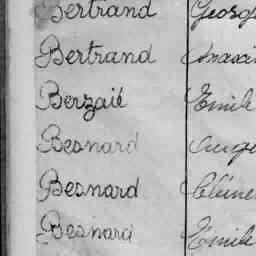 Bertrand Georg
Bertrand
Berzaié Emile
Besnard
Besnard Cléme
Besnard Emile